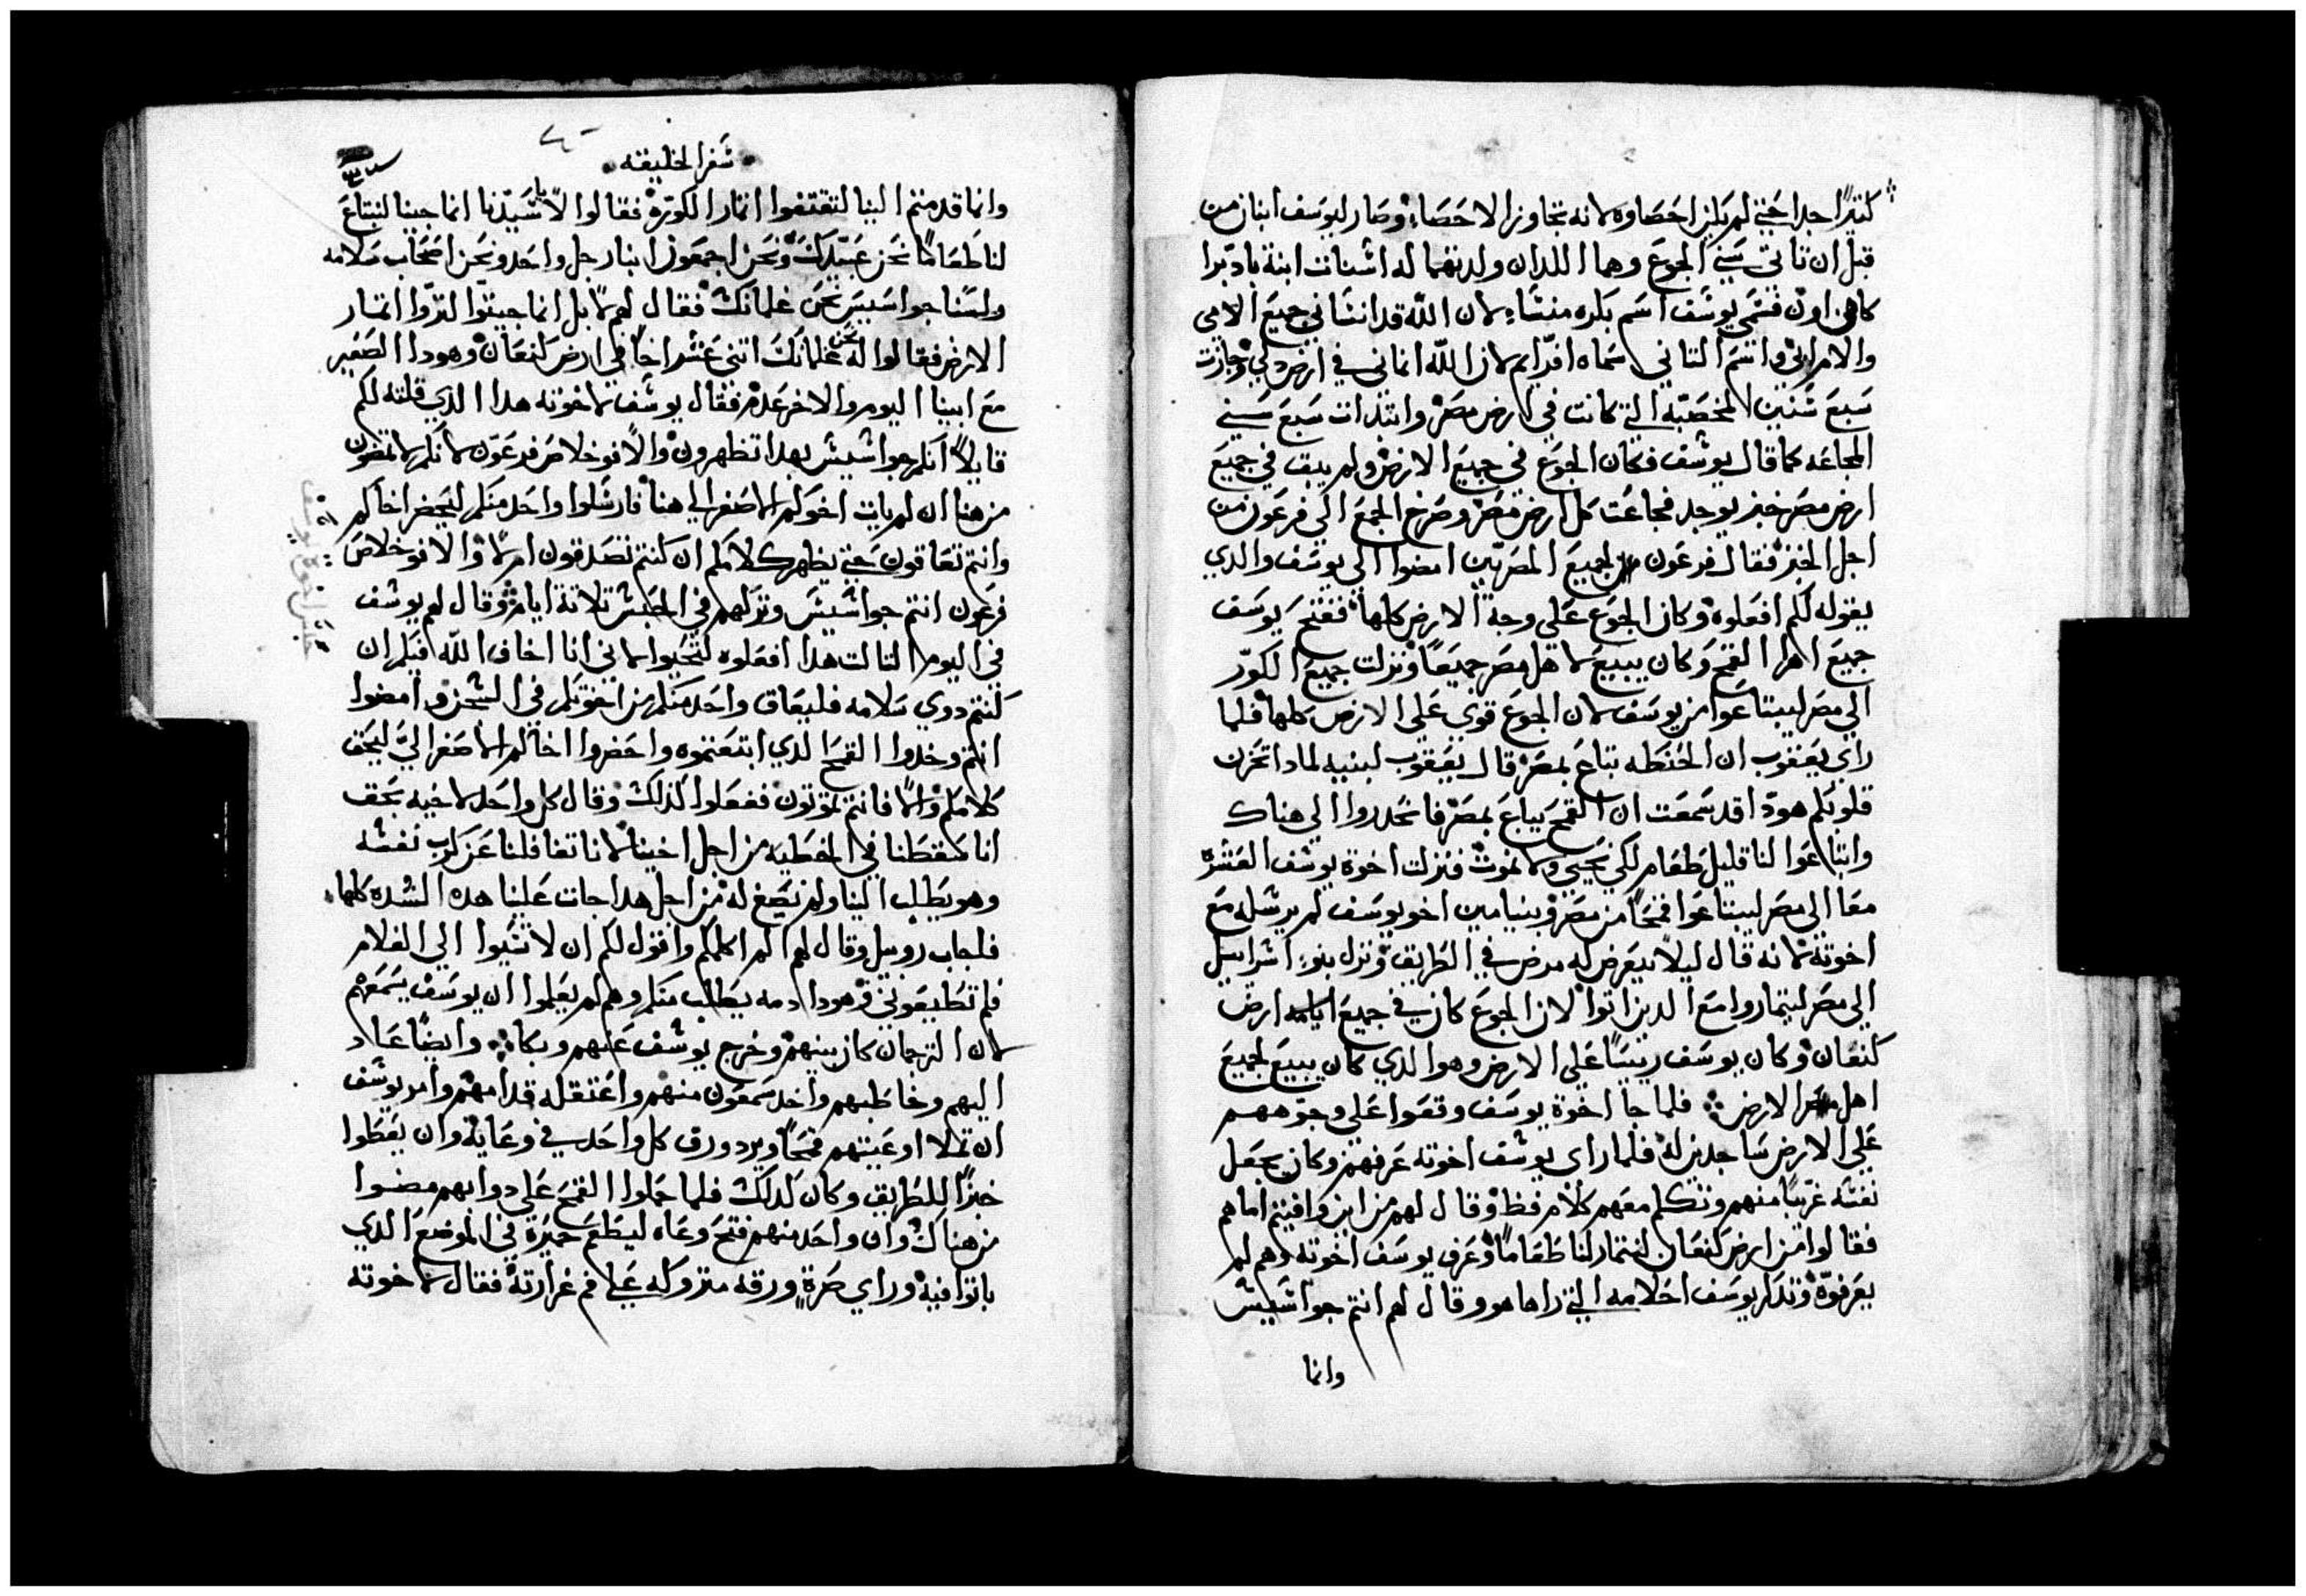 كثيرًا جدا حتي لم يكن احصاوه لانه تجاوز الاحصاء وصار ليوسف ابنان من
قبل ان تاتي سني الجوع وهما اللدان ولدتهما له اشنات ابنة بادبرا
كاهن اون فسمي يوسف اسم بكره منشاء لان الله قد انساني جميع الامي
والام ابي واسم التاني سماه افرايم لان الله انماني في ارض دلي وجازت
سبع سنين المخصبه التي كانت في ارض مصر وابتدات سبع سني
المجاعه كما قال يوسف فكان الجوع في جميع الارض ولم يبق في جميع
ارض مصر خبز يوجد فجاعت كل ارض مصر وصرخ الجمع الي فرعون من
اجل الخبز فقال فرعون لجميع المصريين امضوا الي يوسف والدي
يقوله لكم افعلوه وكان الجوع علي وجة الارض كلها ففتح يوسف
جميع اهرا القمح وكان يبيع لاهل مصر جميعًا ونزلت جميع الكور
الي مصر ليبتاعوا من يوسف لان الجوع قوي علي الارض كلها فلما
راي يعقوب ان الحنطه تباع بمصر قال يعقوب لبنيه لمادا تحزن
قلوبكم هودا قد سمعت ان القمح يباع بمصر فانحدروا الي هناك
وابتاعوا لنا قليل طعام لكي نحيي ولا نموت فنزلت اخوة يوسف العشره
معا الي مصر ليبتاعوا قمحًا من مصر وبنيامين اخو يوسف لم يرسله مع
اخوته لانه قال ليلا يعرض له مرض في الطريق ونزل بنو اسراييل
الي مصر ليمتاروا مع الدين اتوا لان الجوع كان في جميع ارض
كنعان وكان يوسف رييسًا علي الارض وهو الدي كان يبيع لجميع
اهل الارض فلما جا اخوة يوسف وقعوا علي وجوههم
علي الارض ساجدين له فلما راي يوسف اخوته عرفهم وكان يجعل
نفسه غريبًا منهم وتكلم معهم كلام فظ وقال لهم من اين وافيتم اما هم
فقالوا من ارض كنعان لنمتار لنا طعامًا وعرف يوسف اخوته وهم لم
يعرفوه وتدكر يوسف احلامه التي راها هو وقال لهم انتم جواسيس
وانما
سفر الخليقه
وانما قدمتم الينا لتقتفوا اتار الكورة فقالوا لا يا سيدنا انما جينا لنبتاع
لنا طعامًا نحن عبيدك ونحن اجمعون ابنا رجل واحد ونحن اصحاب سلامه
ولسنا جواسيس نحن غلمانك فقال لهم لا بل انما جيتوا لتروا اتار
الارض فقالوا له نحن غلمانك اتني عشر اخًا في ارض كنعان وهودا الصغير
مع ابينا اليوم والاخر عدم فقال يوسف لاخوته هدا الدي قلته لكم
قايلًا انكم جواسيس بهدا تظهرون والا فوخلاص فرعون لانكم لا تمضون
من هنا ان لم يات اخوكم الاصغر الي هنا فارسلوا واحد منكم ليحضر اخاكم
وانتم تعاقون حتي يظهر كلامكم ان كنتم تصدقون ام لا والا فوخلاص
فرعون انتم جواسيس وتركهم في الحبس تلاتة ايام وقال لهم يوسف
في اليوم التالت هدا افعلوه لتحيوا لاني انا اخاف الله قبلم ان
كنتم دوي سلامه فليعاق واحد منكم من اخوتكم في السجن وامضوا
انتم وخدوا القمح الدي ابتعتموه واحضروا اخاكم الاصغر اليّ ليحق
كلامكم والا فانتم تموتون ففعلوا كدلك وقال كل واحد لاخيه بحق
انا سقطنا في الخطيه من اجل اخينا لاننا تغافلنا عن كرب نفسه
وهو يطلب الينا ولم نصغ له من اجل هدا جات علينا هده الشده كلها
فاجاب روبيل وقال لهم الم اكلمكم واقول لكم ان لا تسيوا الي الغلام
فلم تطيعوني وهودا دمه يطلب منكم وهم لم يعلموا ان يوسف يسمعهم
لان الترجمان كان بينهم وخرج يوسف عنهم وبكا وايضًا عاد
اليهم وخاطبهم واخد سمعون منهم واعتقله قدامهم وامر يوسف
ان تملا اوعيتهم قمحًا ويرد ورق كل واحد في وعايه وان يعطوا
خبزًا للطريق وكان كدلك فلما حملوا القمح علي دوابهم مضوا
من هناك وان واحد منهم فتح وعاه ليطعم حميره في الموضع الدي
باتوا فيه وراي صرة ورقه متروكه علي فم غرارته فقال لاخوته